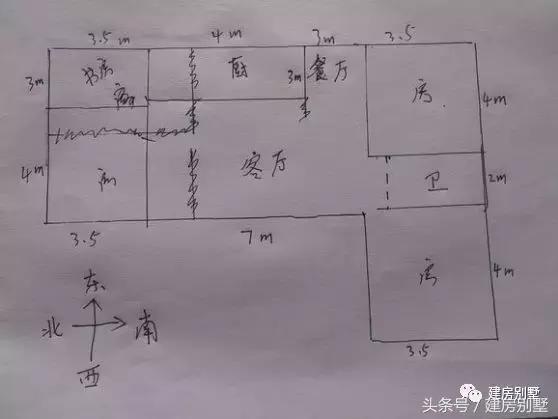 3.5m 4m 3m 3.5
3m 厨 3m 餐厅
房 4m
4m 客厅 卫 2m
3.5 7m
房 4m
东
北 南
西
3.5
建房别墅
头条号 / 建房别墅